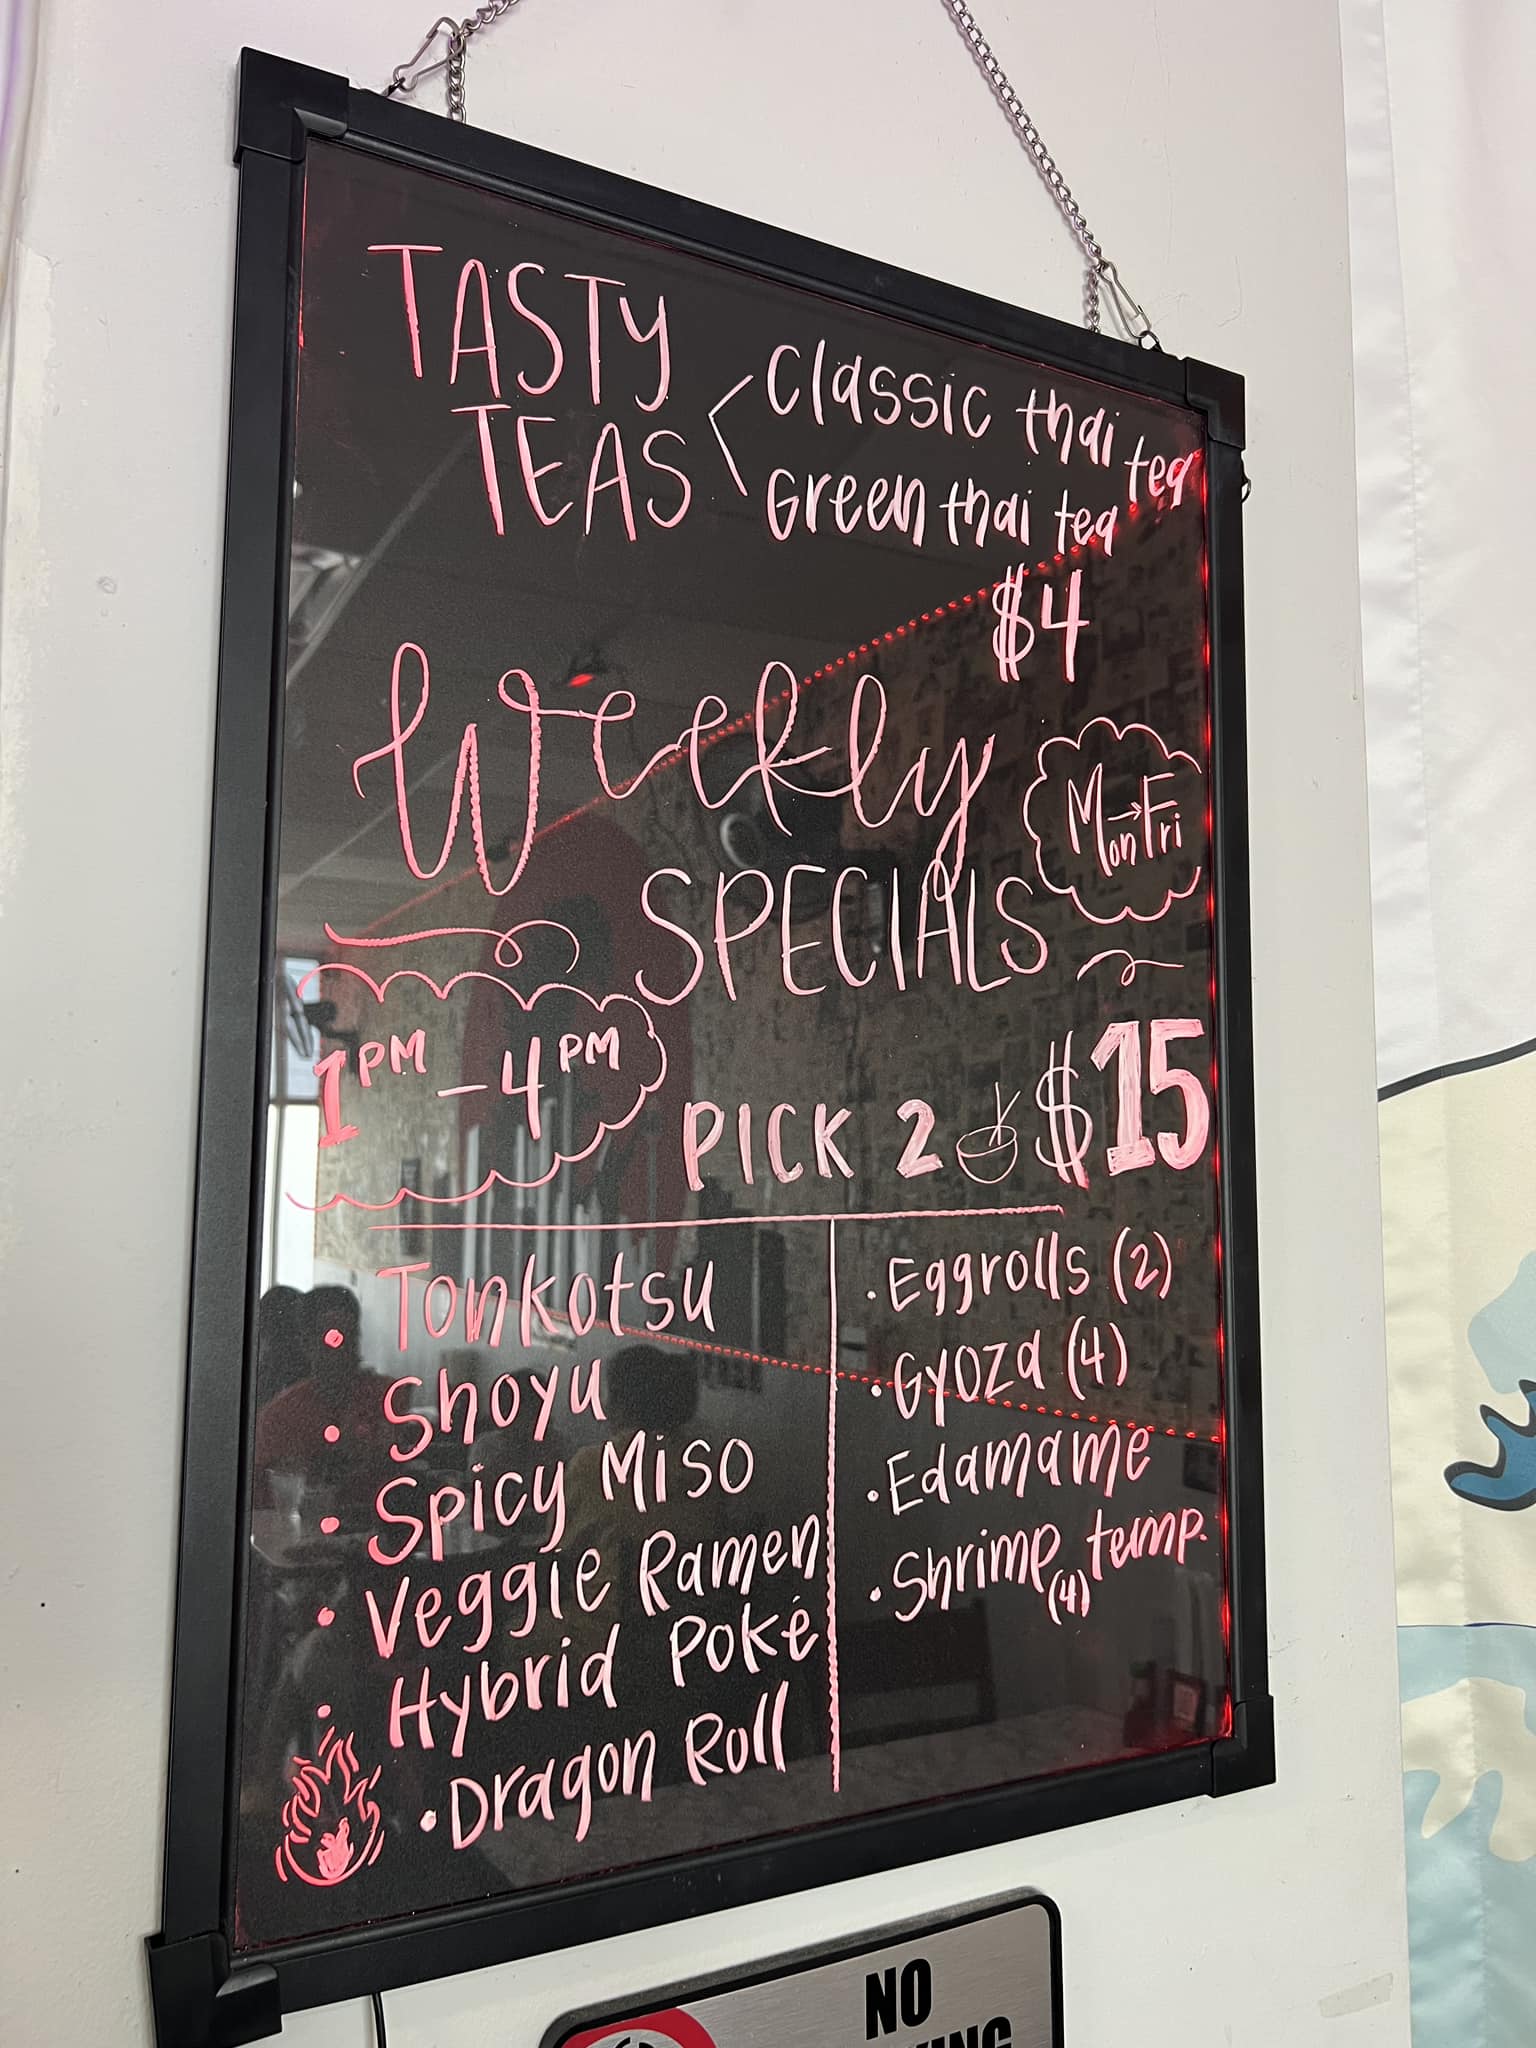 TASTY
TEAS
Classic thai tea
Green thai tea
$4
Weekly
SPECIALS
Mon→Fri
1PM-4PM
PICK 2 $15
• Tonkotsu
• Shoyu
• Spicy Miso
• Veggie Ramen
• Hybrid Poké
• Dragon Roll
• Eggrolls (2)
• Gyoza (4)
• Edamame
• Shrimp temp.
(4)
NO